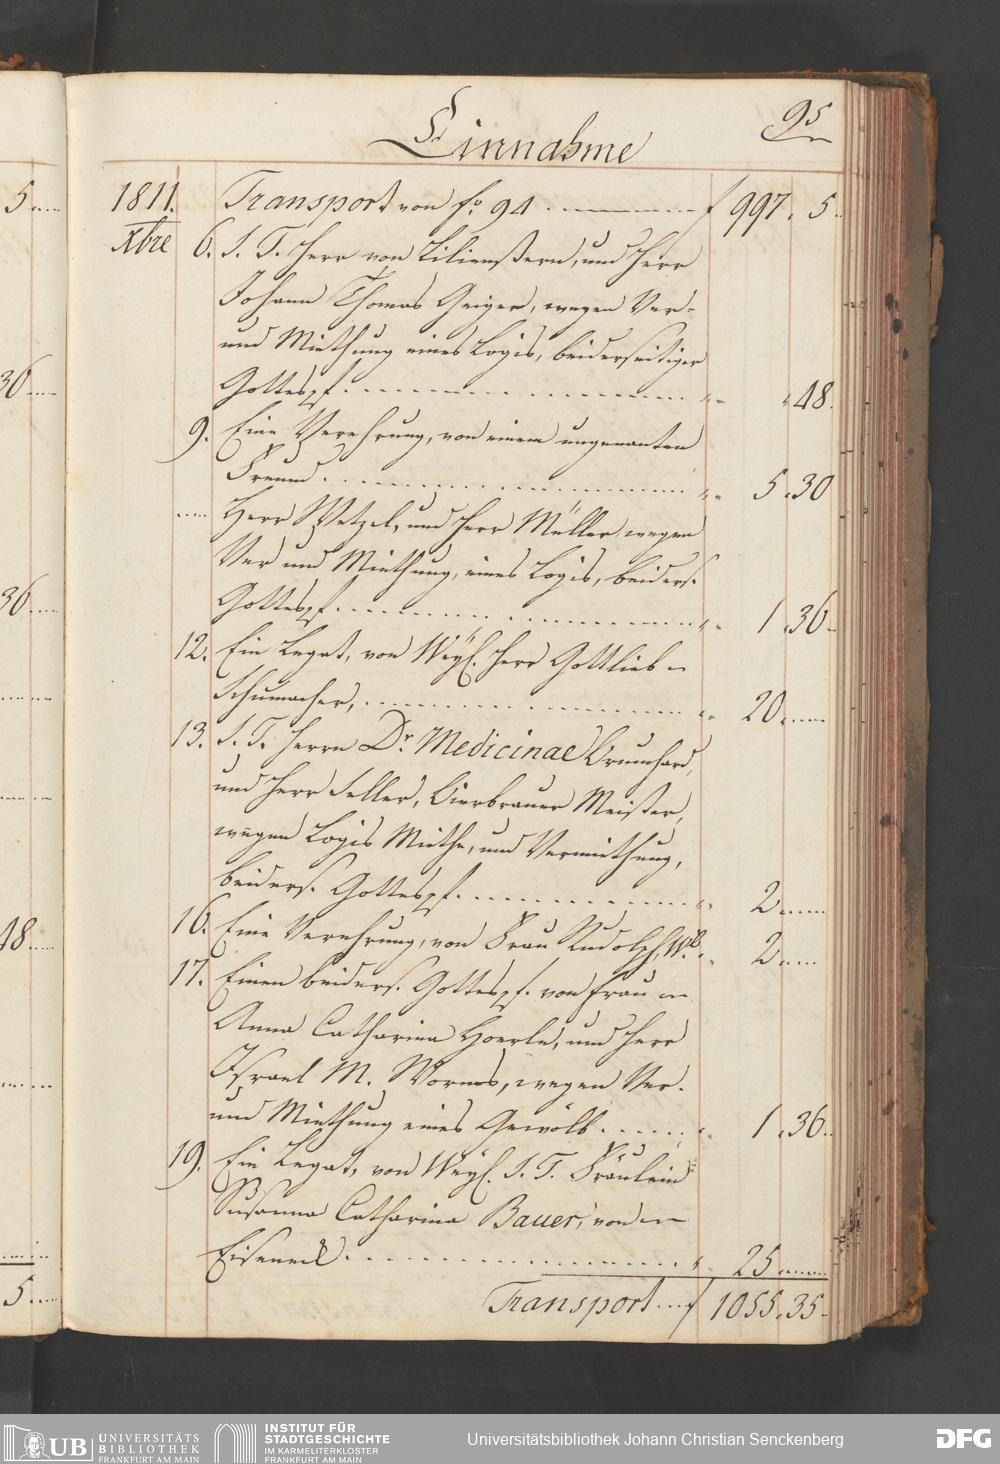 95
Einnahme
1811. Transport von fo. 94 ........ f 997. 5.
Xbre 6. S. T. Herr von Lilienstern, und Herr
Johann Thomas Geiger, wegen Ver-
und Miethung eines Logis, beiderseitiger
Gottespf. ........ " 48.
9. Eine Verehrung, von einem ungenanten
Freund ........ " 5. 30
..... Herr Wetzel, und Herr Müller, wegen
Ver und Miethung, eines Logis, beiders.
Gottespf. ........ " 1. 36.
12. Ein Legat, von Weyl. Herr Gottlieb
Schumacher, ........ " 20.....
13. S. T. Herrn Dr. Medicinae
und Herr Feller, Bierbrauer Meister,
wegen Logis Miethe, und Vermiethung,
beiders. Gottespf. ........ " 2.....
16. Eine Verehrung, von Frau Rudolph, Wb. " 2.....
17. Einen beiders. Gottespf. von Frau
Anna Catharina Hoerle, und Herr
Israel M. Worms, wegen Ver-
und Miethung eines Gewölb ...... " 1. 36.
19. Ein Legat, von Weyl. S. T. Fräulein
Susanna Catharina Bauer, von
Eiseneck ........ " 25.....
Transport .... f 1055. 35.
5....
30....
36....
48....
5....
UB UNIVERSITÄTS
BIBLIOTHEK
FRANKFURT AM MAIN
INSTITUT FÜR
STADTGESCHICHTE
IM KARMELITERKLOSTER
FRANKFURT AM MAIN
Universitätsbibliothek Johann Christian Senckenberg
DFG